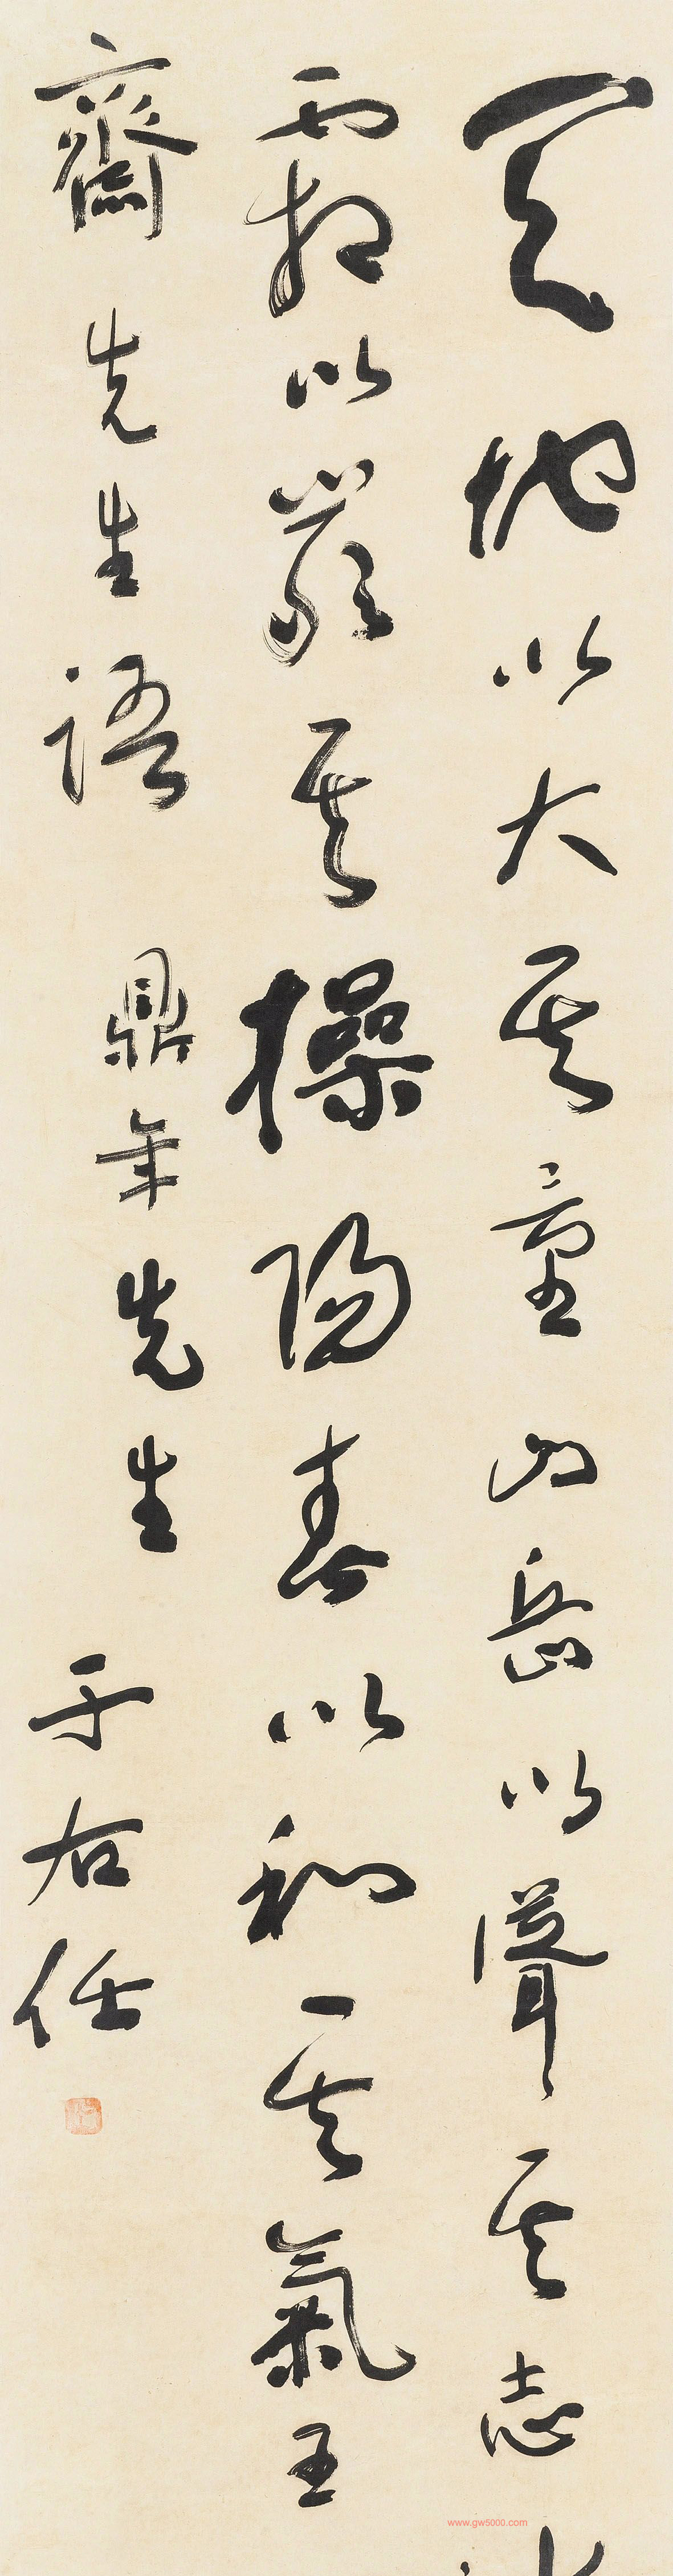 天地以大其量山岳以聳其志
霜以嚴其操陽春以和其氣王
齋先生語 鼎年先生 于右任
www.gw5000.com